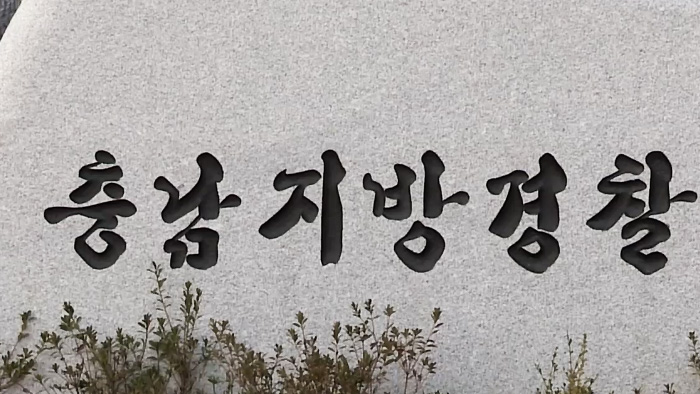 충남지방경찰